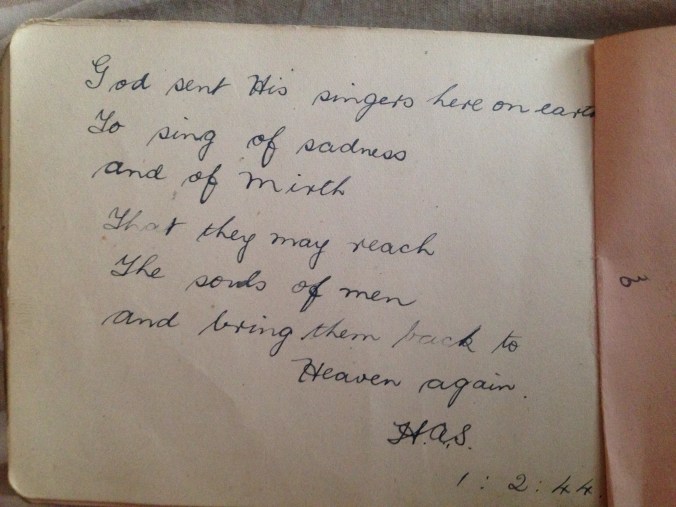 God sent His singers here on earth
To sing of sadness
and of Mirth
That they may reach
The souls of men
and bring them back to
Heaven again.
H.A.S.
1:2:44.